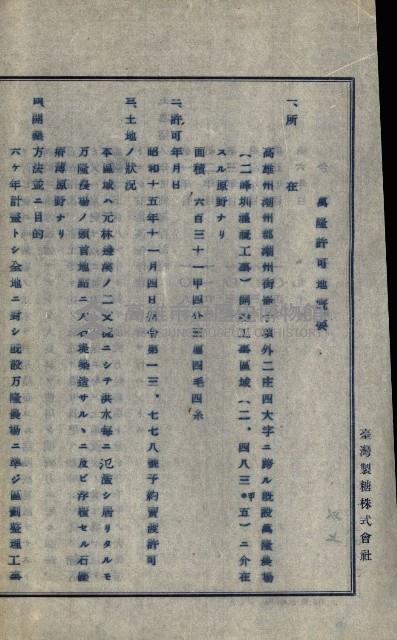 萬隆許可地概要
一、所在
高雄州潮州郡潮州街外二庄四大字ニ跨ル既設萬隆農場
(二峰圳灌漑工事)開墾工事區域(二、四八三甲・五)ニ介在
スル原野ナリ
面積 六百三十一甲四分三厘四毛四糸
二、許可年月日
昭和十五年十一月四日第一三、七七八號予約賣渡許可
三、土地ノ狀況
本區域ハ元林邊溪ノ二支流ニシテ洪水毎ニ氾濫シ居リタルモ
万隆農場ノ頭首地點ニ大石堤築造サルヽニ及ビ存置セル石
薄原野ナリ
四、開墾方法並ニ目的
六ケ年計畫トシ全地ニ對シ既設万隆農場ニ準ジ區劃整理工事
臺灣製糖株式會社
以上